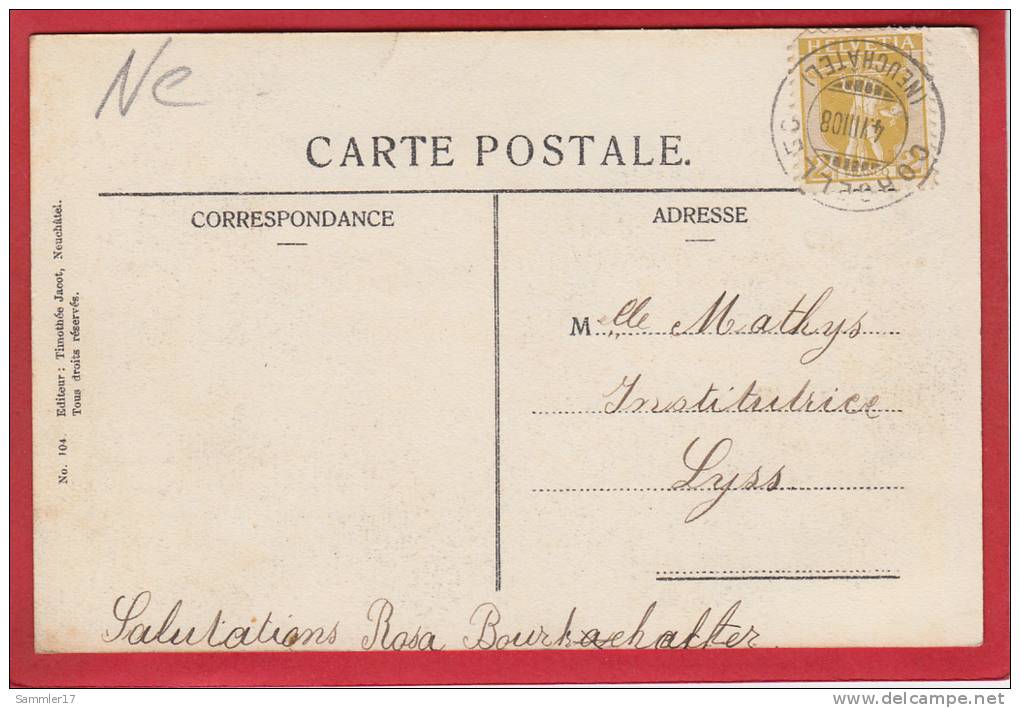 Ne
HELVETIA
CORCELLES
(NEUCHÂTEL)
4.VIII.08
2 2
CARTE POSTALE.
CORRESPONDANCE
ADRESSE
No. 104. Editeur: Timothée Jacot, Neuchâtel.
Tous droits réservés.
Melle Mathys
Institutrice
Lyss.
Salutations Rosa
Sammler17
www.delcampe.net